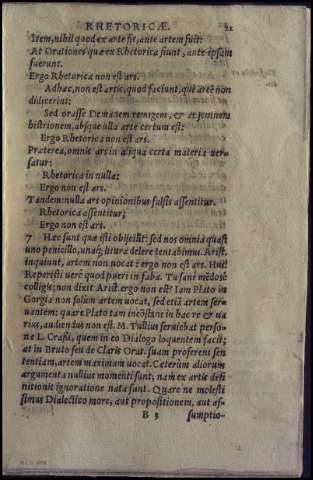 RHETORICÆ. 21
Item, nihil quod ex arte fit, ante artem fuit:
At Orationes quæ ex Rhetorica fiunt, ante ipsam
fuerunt.
Ergo Rhetorica non est ars.
Adhæc, non est artis, quod faciunt, qui artē nõn
didicerint:
Sed orasse Dematem remigem, & Aeschinem
histrionem, absque ulla arte certum est:
Ergo Rhetorica non est ars.
Præterea, omnis ars in aliqua certa materia uer-
satur:
Rhetorica in nulla:
Ergo non est ars.
Tandem: nulla ars opinionibus falsis assentitur.
Rhetorica assentitur;
Ergo non est ars.
7 Hæc sunt quæ isti obijciūt: sed nos omnia quasi
uno penicillo, unaq; litura delere tentabimus. Arist.
inquiunt, artem non uocat: ergo non est ars. Hui!
Reperisti uerè quod pueri in faba. Tu sanè mēdosè
colligis; non dixit Arist. ergo non est? Iam Plato in
Gorgia non solùm artem uocat, sed etiā artem ser-
uantem: quare Plato tam incōstans in hac re & ua
rius, audiendus non est. M. Tullius seruiebat perso-
næ L. Crassi, quem in eo Dialogo loquentem facit;
at in Bruto seu de Claris Orat. suam proferens sen
tentiam, artem maximam uocat. Cæterùm aliorum
argumenta nullius momenti sunt; nam ex artis defi
nitionis ignoratione nata sunt. Quare ne molesti
simus Dialectico more, aut propositionem, aut as-
B 3 sumptio-